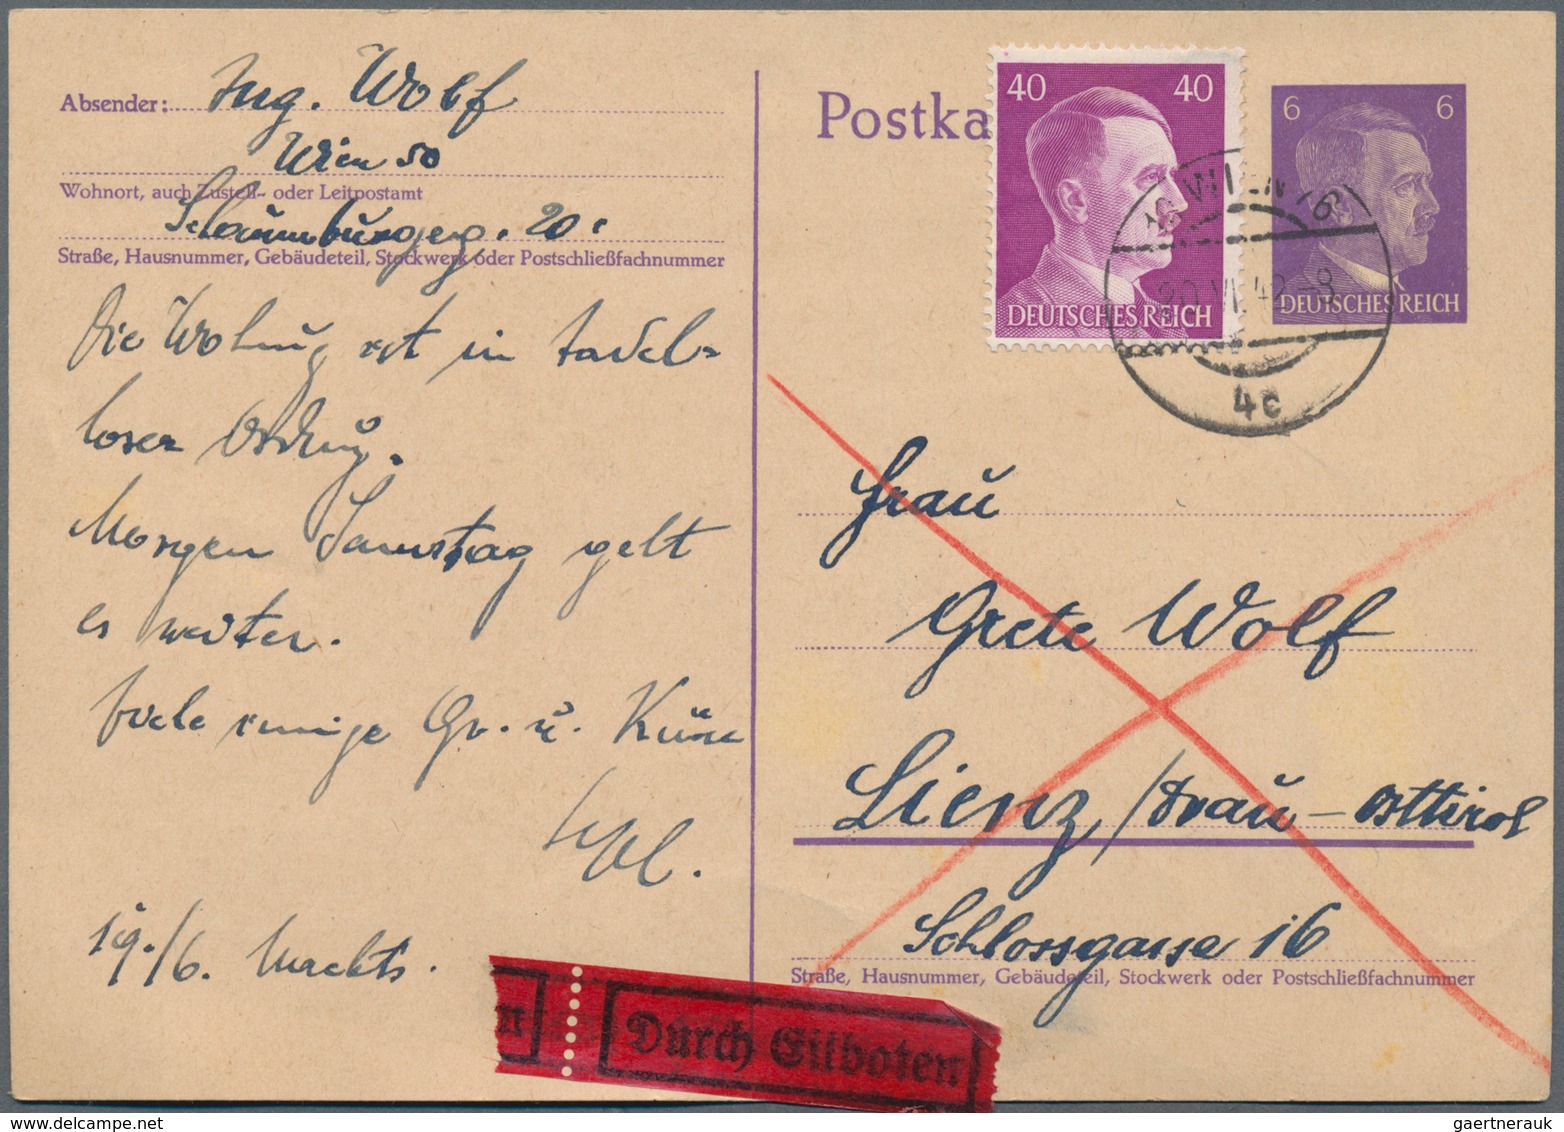 Absender: Ing. Wolf
Wien 50
Wohnort, auch Zustell- oder Leitpostamt
Schaumburgerg. 20.
Straße, Hausnummer, Gebäudeteil, Stockwerk oder Postschließfachnummer
Die Wohnung ist in tadel-
loser Ordnung.
Morgen Samstag gelt
es weiter.
Viele innige Gr. u. Küsse
19./6. Nachts.
Postka
40 40
DEUTSCHES REICH
6 6
DEUTSCHES REICH
WIEN 76
20.VI.42-8
4c
Frau
Grete Wolf
Lienz, /Drau - Osttirol
Schlossgasse 16
Straße, Hausnummer, Gebäudeteil, Stockwerk oder Postschließfachnummer
n Durch Eilboten
gaertnerauk